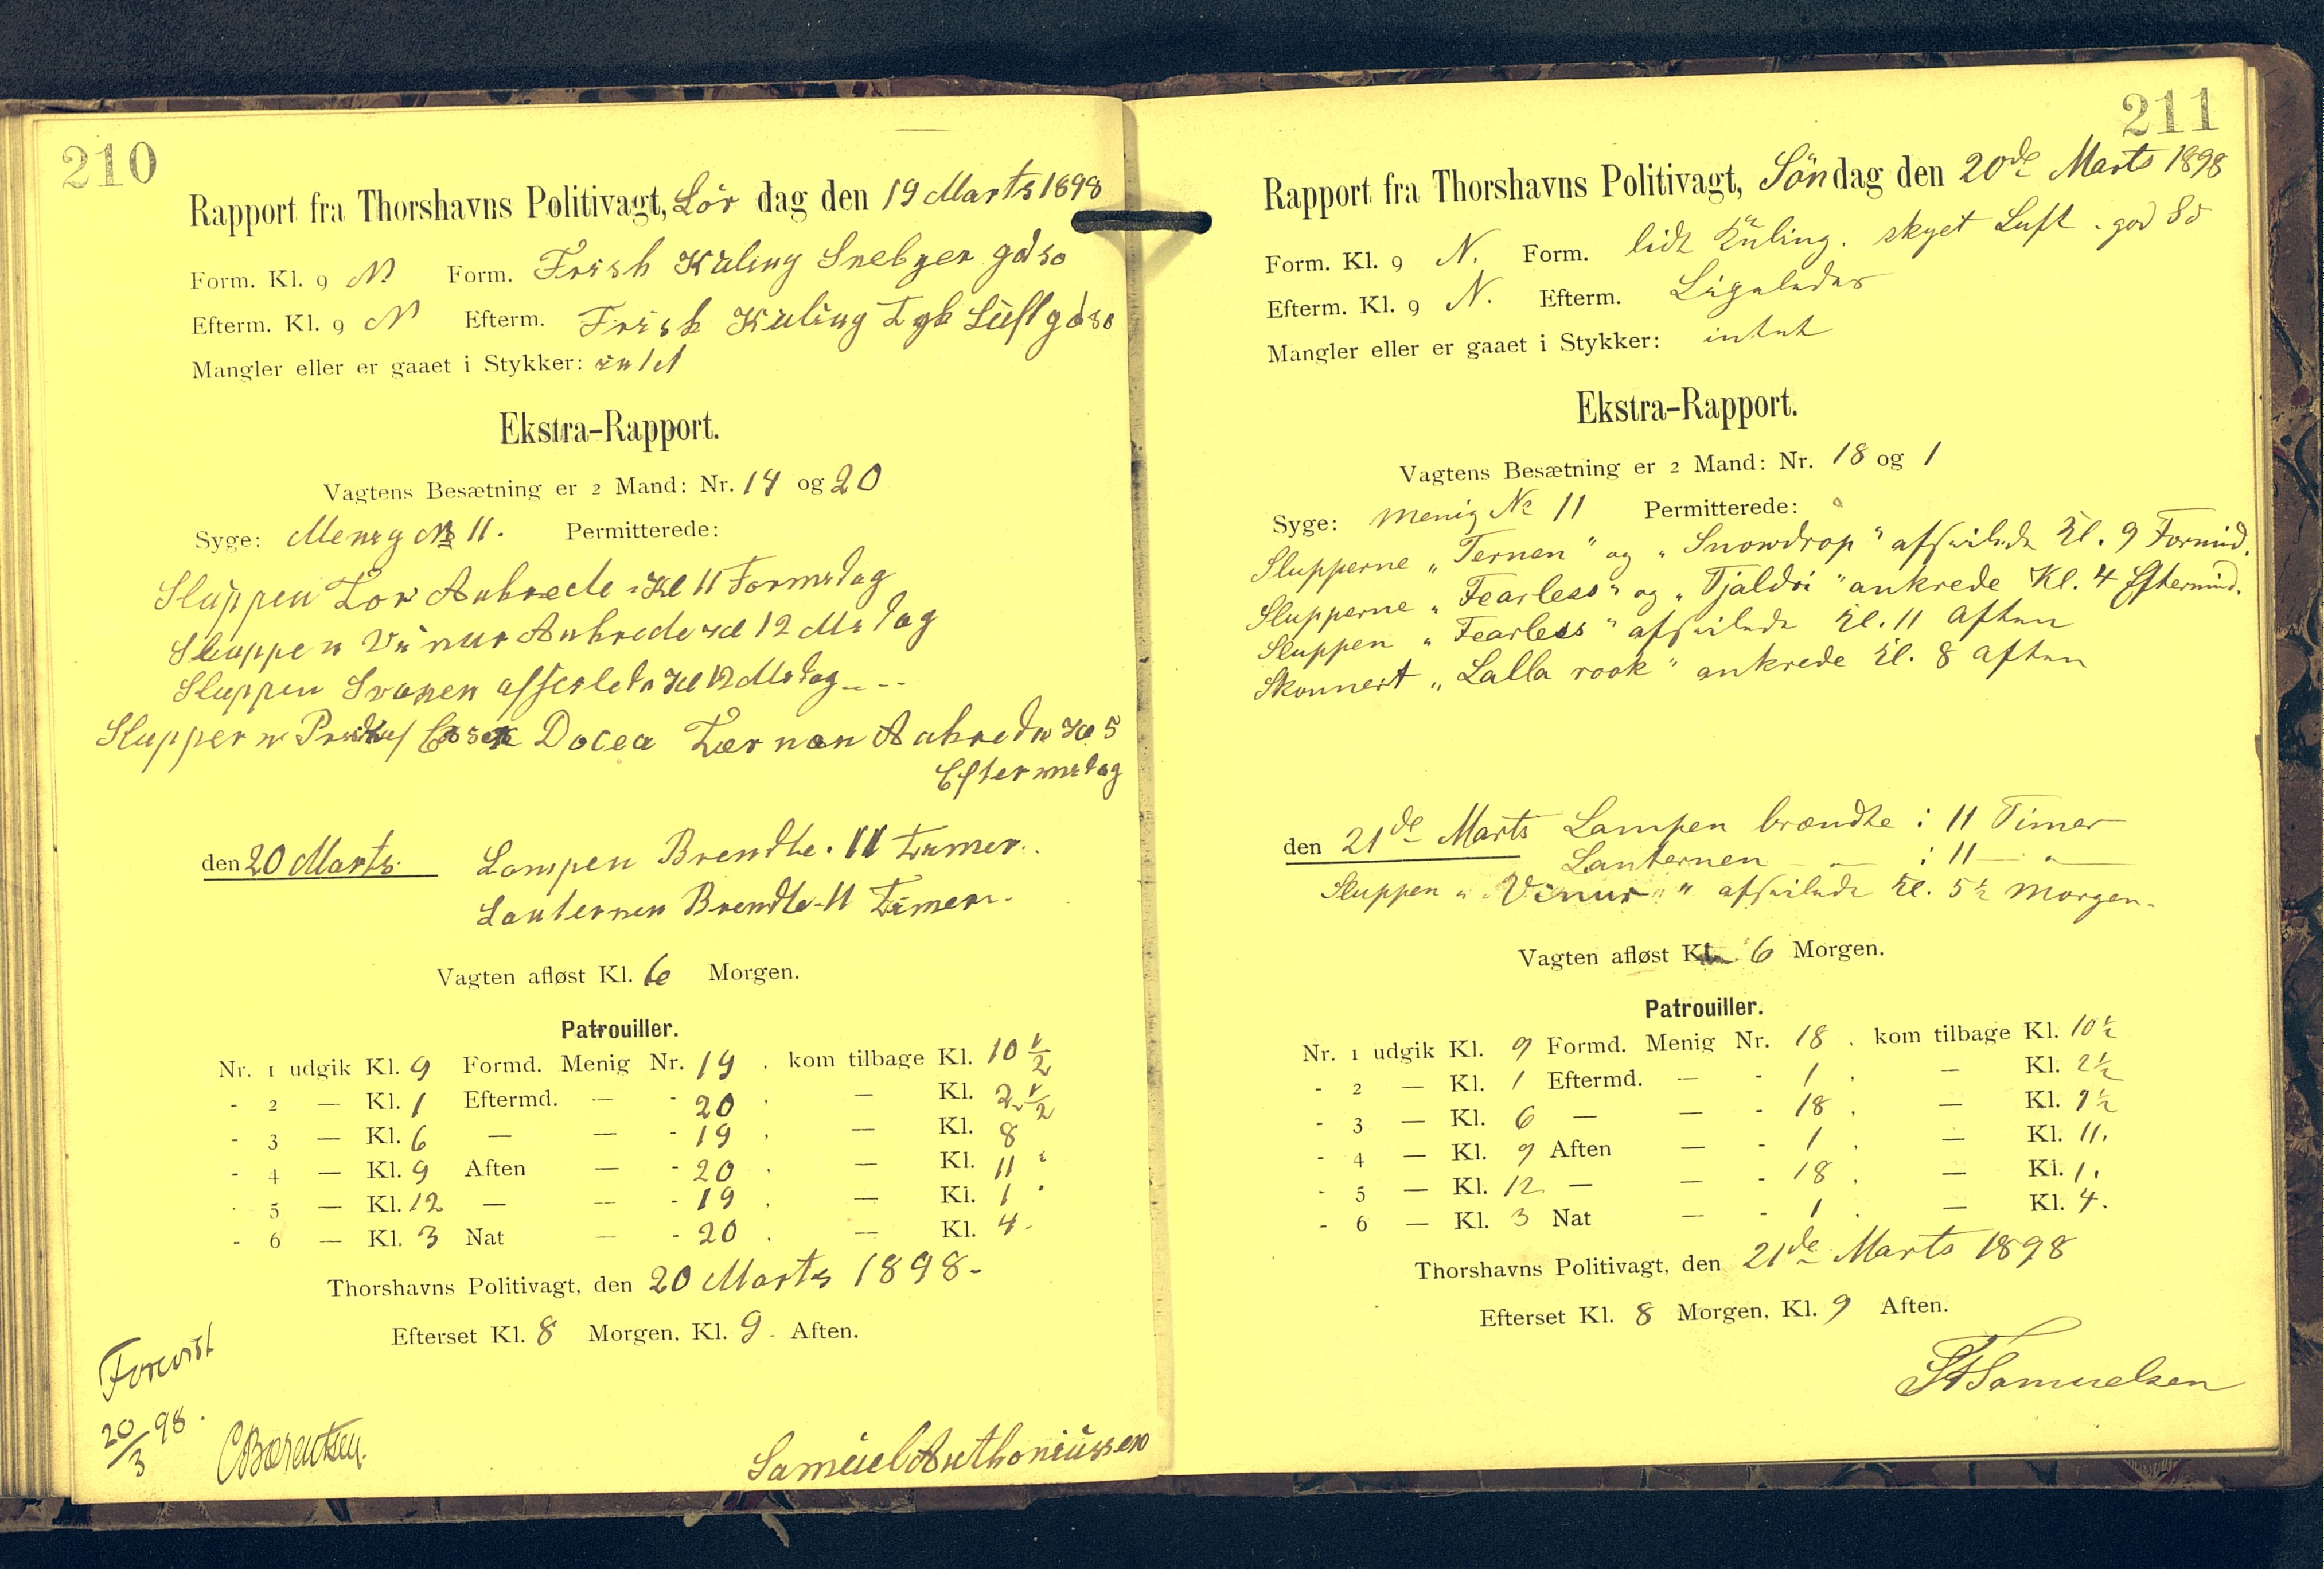 210
Rapport fra Thorshavns Politivagt, Lör dag den 19 Marts 1898
Form. Kl. 9 N Form. Frisk Kuling Snebyer gd so
Efterm. Kl. 9 N Efterm. Frisk Kuling Tyk Luft gd so
Mangler eller er gaaet i Stykker: intet
Ekstra-Rapport.
Vagtens Besætning er 2 Mand: Nr. 19 og 20
Syge: Menig No 11. Permitterede:
Sluppen Tor Ankrede Kl 11 Formidag
Sluppen Vinur Ankrede Kl 12 Midag
Sluppen Svanen afseilede Kl 12 Midag
Slupperne Docea Ternen Ankrede Kl 5
Eftermidag
den 20 Marts. Lampen Brendte. 11 Timer.
Lanternen Brendte 11 Timer.
Vagten afløst Kl. 6 Morgen.
Patrouiller.
Nr. 1 udgik Kl. 9 Formd. Menig Nr. 19 . kom tilbage Kl. 10 1/2
- 2 — Kl. 1 Eftermd. — - 20 . — Kl. 2 1/2
- 3 — Kl. 6 — — - 19 . — Kl. 8
- 4 — Kl. 9 Aften — - 20 . — Kl. 11
- 5 — Kl. 12 — — - 19 . — Kl. 1
- 6 — Kl. 3 Nat — - 20 . — Kl. 4
Thorshavns Politivagt, den 20 Marts 1898-
Efterset Kl. 8 Morgen, Kl. 9. Aften.
Forevist
20/3 98.
CBærentsen.
Samuel Anthoniussen
211
Rapport fra Thorshavns Politivagt, Söndag den 20de Marts 1898
Form. Kl. 9 N. Form. lidt Kuling. skyet Luft. god Sö
Efterm. Kl. 9 N. Efterm. Ligeledes
Mangler eller er gaaet i Stykker: intet
Ekstra-Rapport.
Vagtens Besætning er 2 Mand: Nr. 18 og 1
Syge: menig No 11 Permitterede:
Slupperne „Ternen" og „Snowdrop" afseilede Kl. 9 Formid.
Slupperne „Fearless" og „Tjaldri" ankrede Kl. 4 Eftermid.
Sluppen „Fearless" afseilede Kl. 11 Aften
Skonnert „Lalla rook" ankrede Kl. 8 Aften
den 21de Marts Lampen brændte : 11 Timer
Lanternen — : 11 — " —
Sluppen „Vinur" afseilede Kl. 5½ Morgen.
Vagten afløst Kl. 6 Morgen.
Patrouiller.
Nr. 1 udgik Kl. 9 Formd. Menig Nr. 18 . kom tilbage Kl. 10½
- 2 — Kl. 1 Eftermd. — - 1 . — Kl. 2½
- 3 — Kl. 6 — — - 18 . — Kl. 7½
- 4 — Kl. 9 Aften — - 1 . — Kl. 11.
- 5 — Kl. 12 — — - 18 . — Kl. 1.
- 6 — Kl. 3 Nat — - 1 . — Kl. 4.
Thorshavns Politivagt, den 21de Marts 1898
Efterset Kl. 8 Morgen, Kl. 9 Aften.
Samuelsen